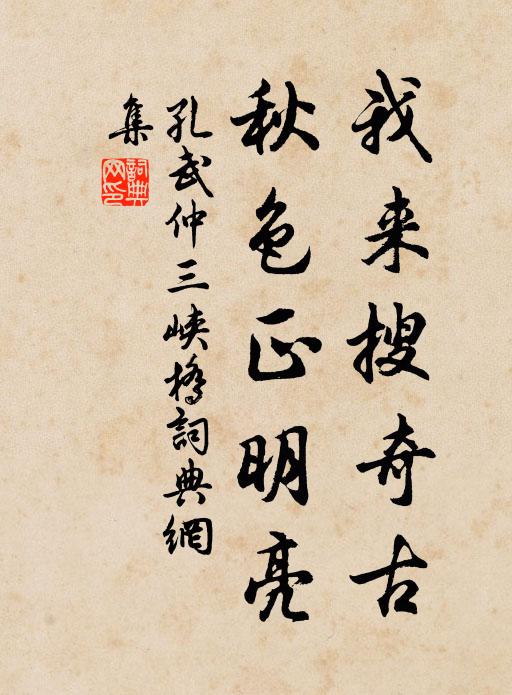 我来搜奇古
秋色正明亮
孔武仲三峡橋詞典網
集
詞典网印